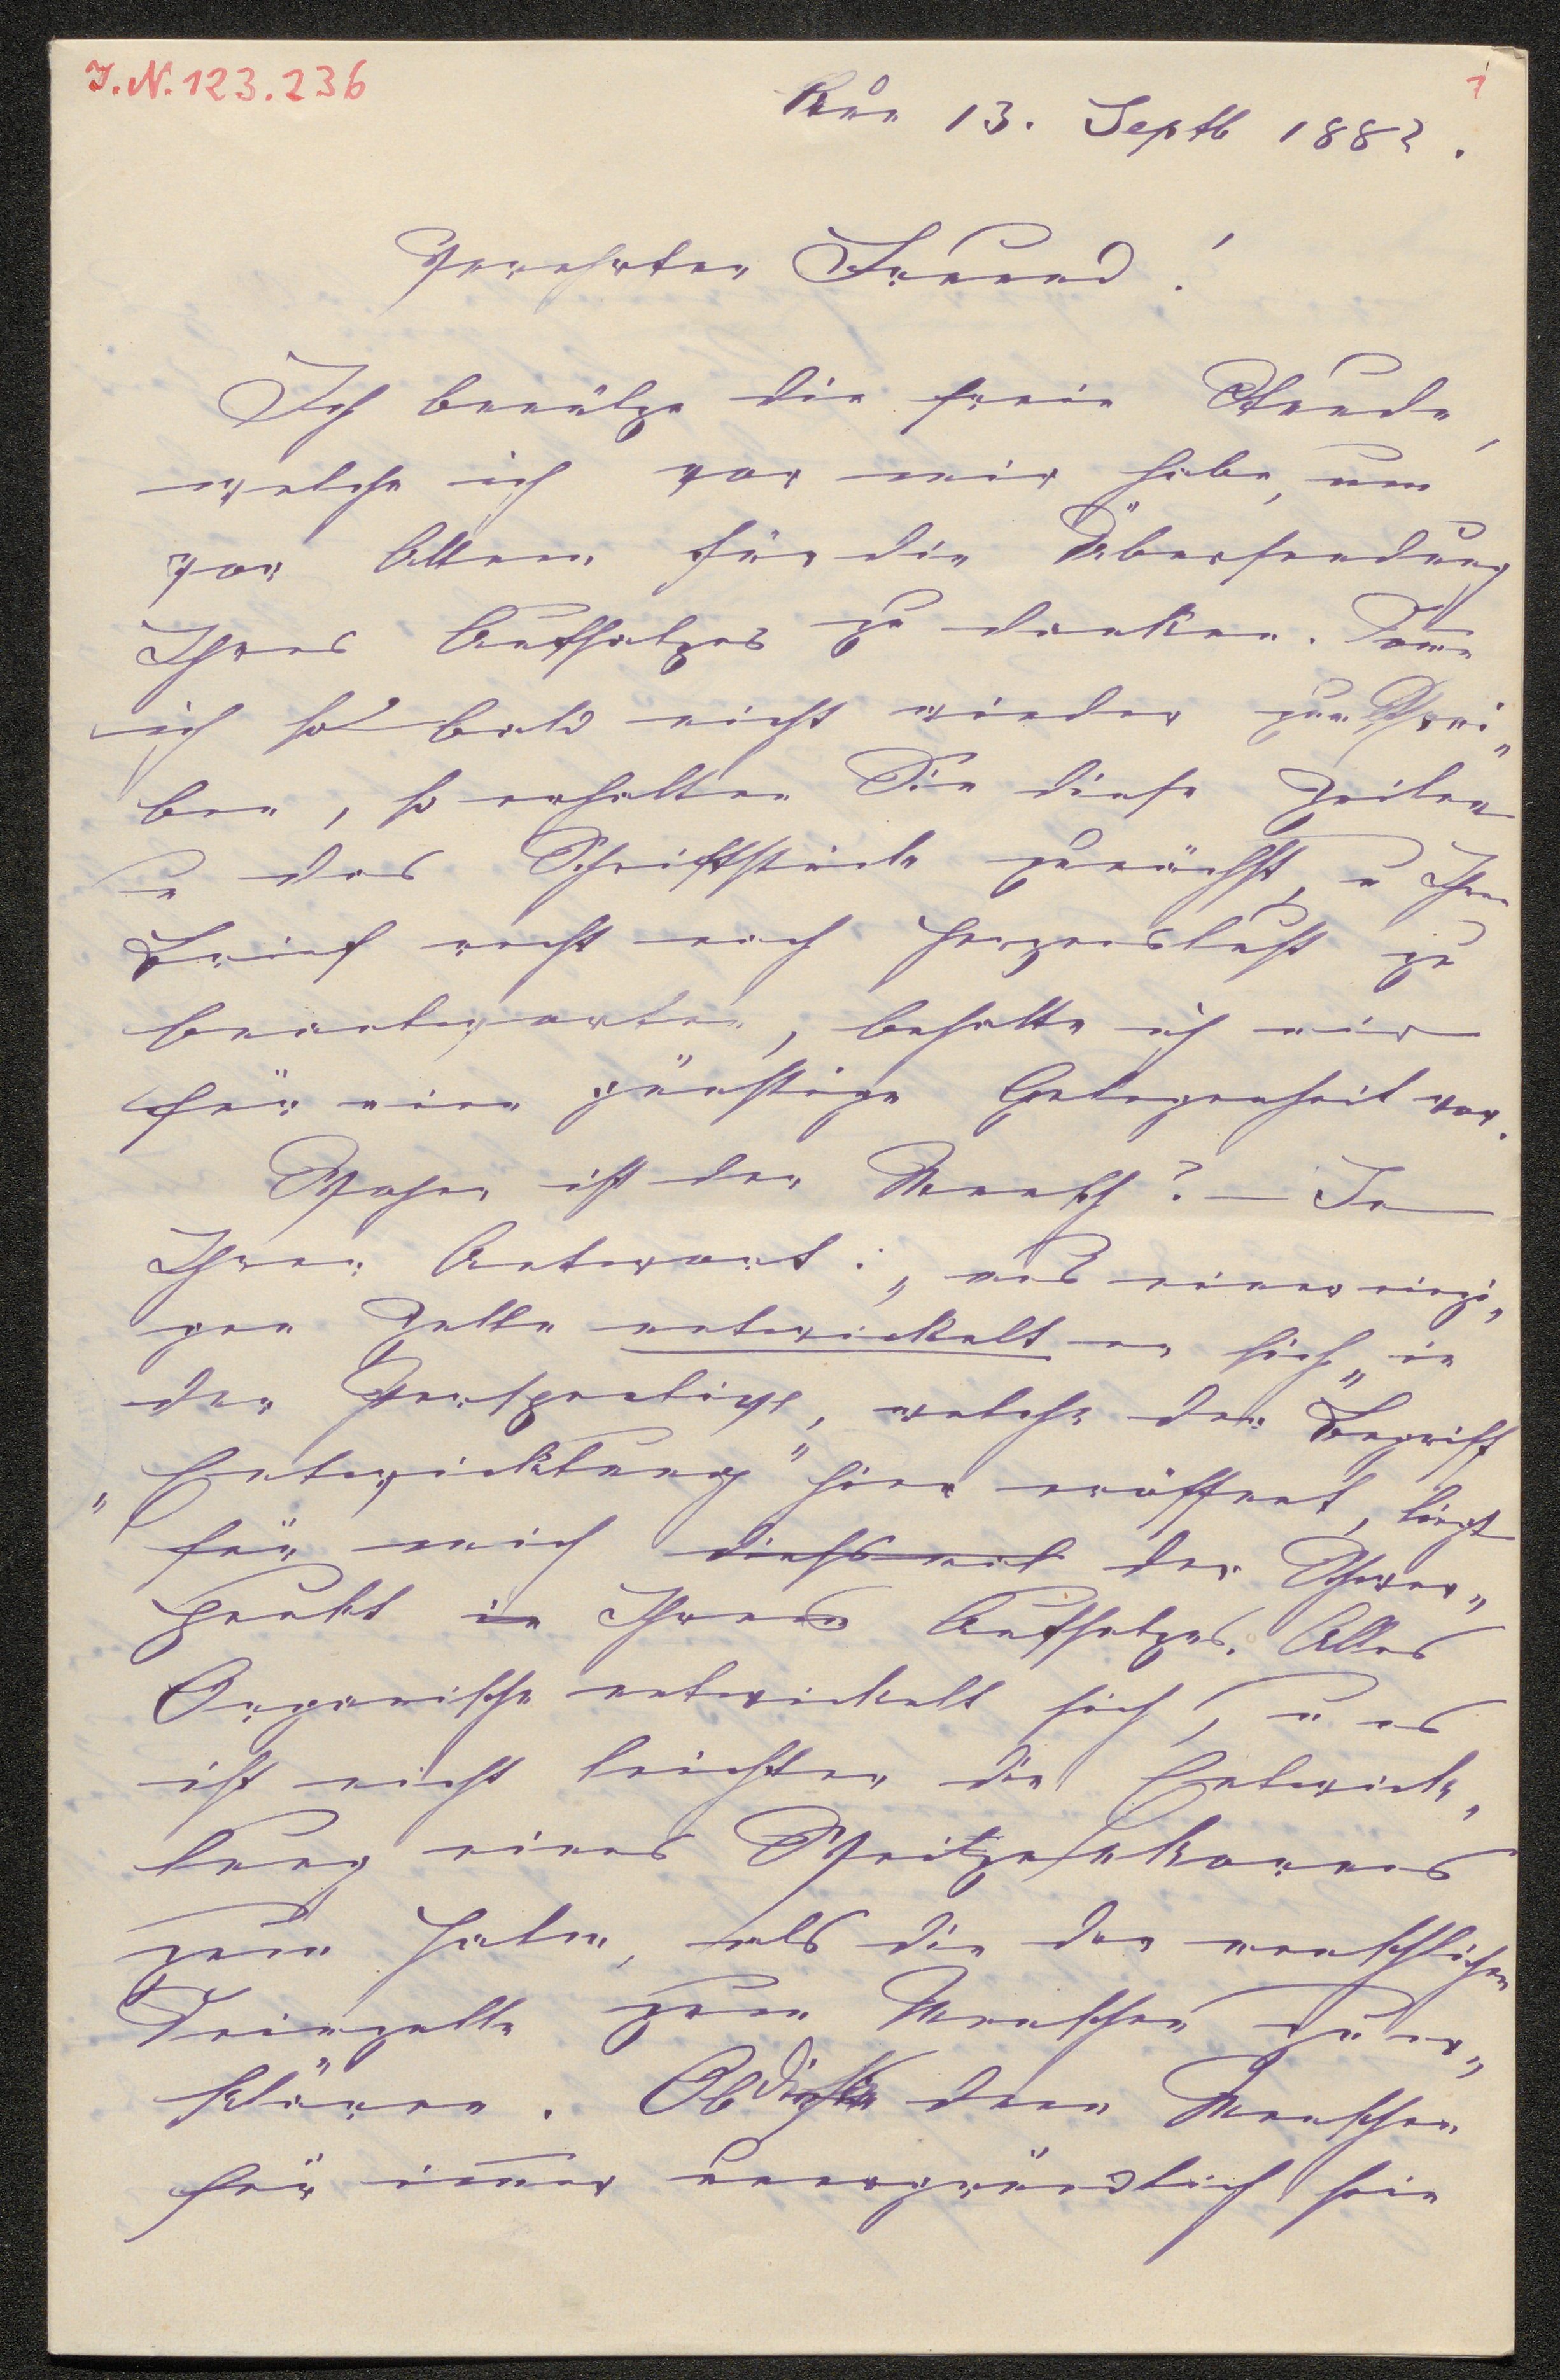 I.N. 123.236
1
13. Septb 1882.
Verehrter Freund!
Ich benütze die freie Stunde,
welche ich vor mir habe, um
vor Allem für die Übersendung
Ihres Aufsatzes zu danken. Komme
ich so bald nicht wieder zum Schrei„
ben, so erhalten Sie diese Zeilen
u das Schriftstück zunächst, u Ihren
Brief recht nach Herzenslust zu
beantworten, behalte ich mir
für eine günstige Gelegenheit vor.
Woher ist der Mensch? – In
Ihrer Antwort: „aus einer einzi„
gen Zelle entwickelt er sich„ in
der Perspective, welche der Begriff
„Entwicklung" hier eröffnet, liegt
für mich dießmal der Schwer„
punkt in Ihres Aufsatzes. Alles
Organische entwickelt sich, u es
ist nicht leichter die Entwick„
lung eines Weitzenkornes
zum Halm, als die der menschlichen
Keimzelle zum Menschen zu er„
klären. Ob dieß dem Menschen
für immer unergründlich sein